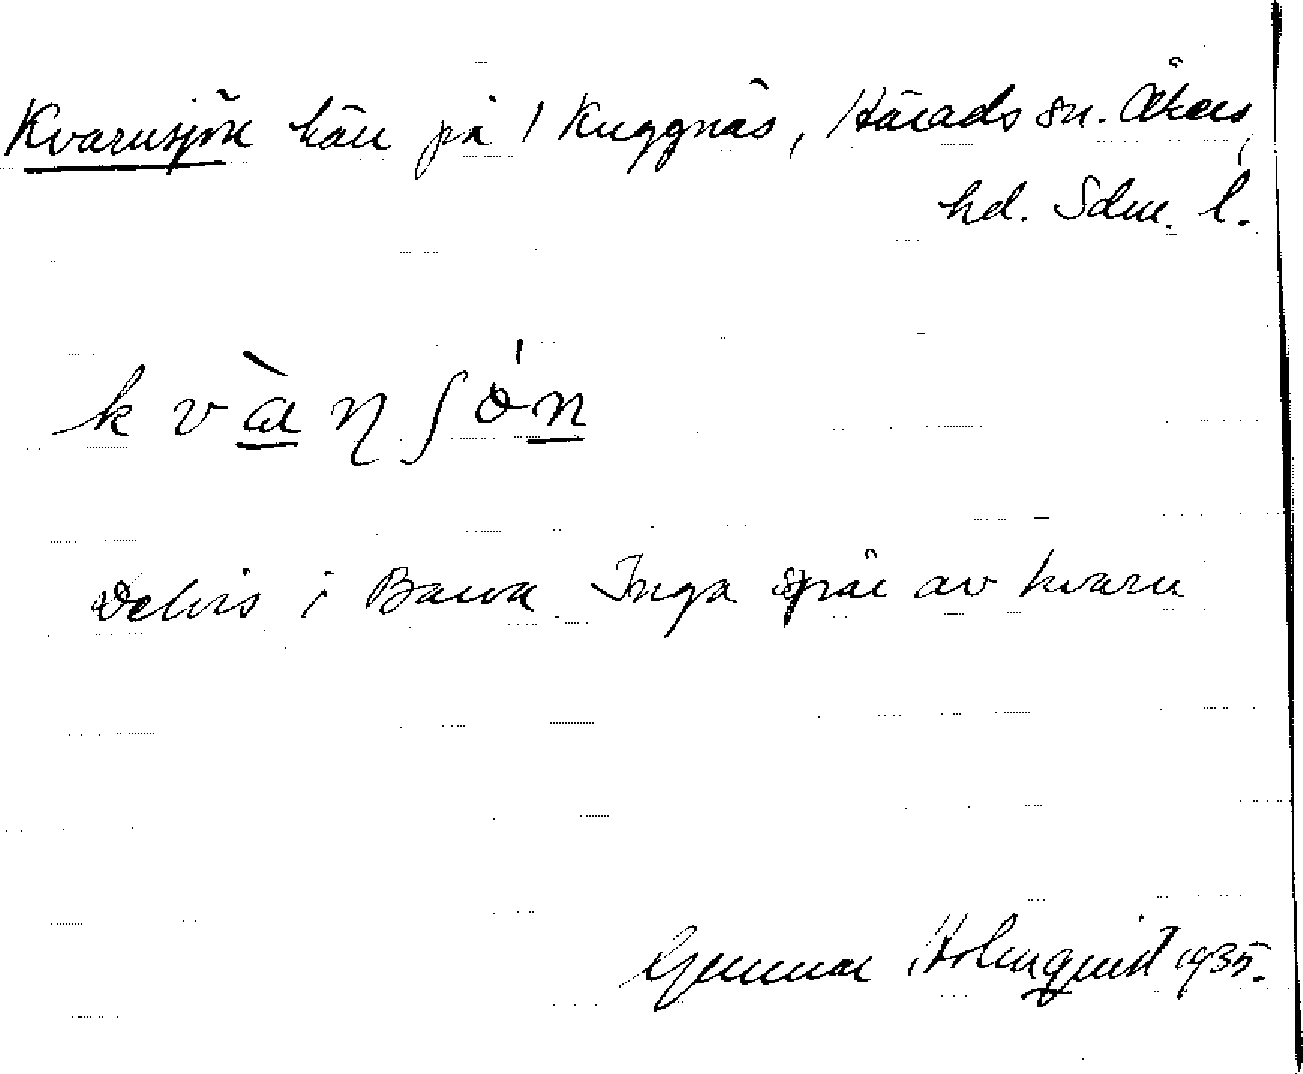 Kvarnsjön kärr på 1 Kuggnäs, Härads sn. Åkers
hd. Sdm. l.
k v à n ʃ ó n
Delvis i Barva Inga spår av kvarn
Gunnar Holmquist 1935.